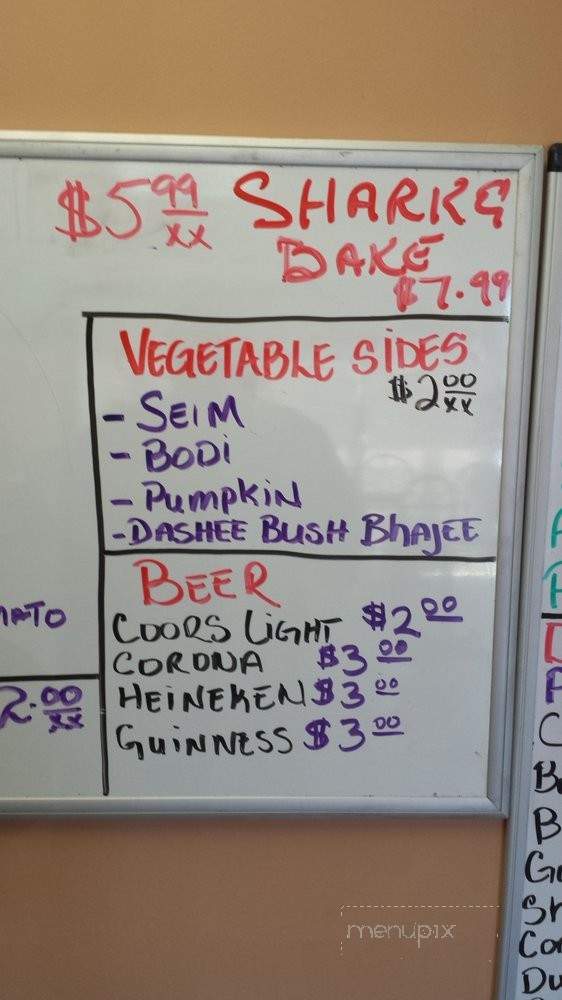 $5 99/xx SHARK &
BAKE
$7.99
VEGETABLE SIDES
$2 00/xx
- SEIM
- BODI
- PUMPKIN
- DASHEE BUSH BHAJEE
BEER
COORS LIGHT $2 00
CORONA $3 00
HEINEKEN $3 00
GUINNESS $3 00
MATO
2.00/xx
menupix